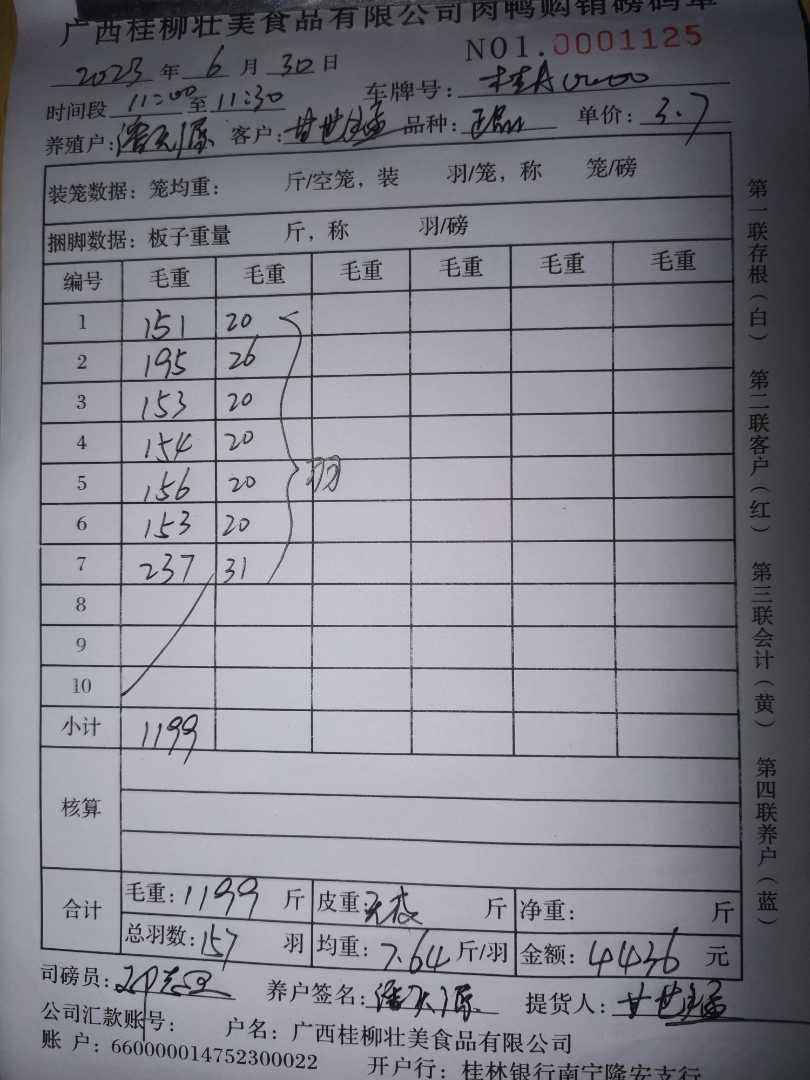 广西桂柳壮美食品有限公司肉鸭购销磅码单
NO1.0001125
2023年6月30日
时间段 11:00至11:30 车牌号: 桂A00000
养殖户: 客户: 甘世宝孟 品种: 正品 单价: 3.7
装笼数据: 笼均重: 斤/空笼, 装 羽/笼, 称 笼/磅
捆脚数据: 板子重量 斤, 称 羽/磅
编号 毛重 毛重 毛重 毛重 毛重 毛重
1 151 20
2 195 26
3 153 20
4 154 20
5 156 20 羽
6 153 20
7 237 31
8
9
10
小计 1199
核算
合计 毛重: 1199 斤 皮重: 无皮 斤 净重: 斤
总羽数: 157 羽 均重: 7.64 斤/羽 金额: 4436 元
司磅员: 养户签名: 提货人:
公司汇款账号: 户名: 广西桂柳壮美食品有限公司
账户: 660000014752300022 开户行: 桂林银行南宁隆安支行
第一联存根(白) 第二联客户(红) 第三联会计(黄) 第四联养户(蓝)